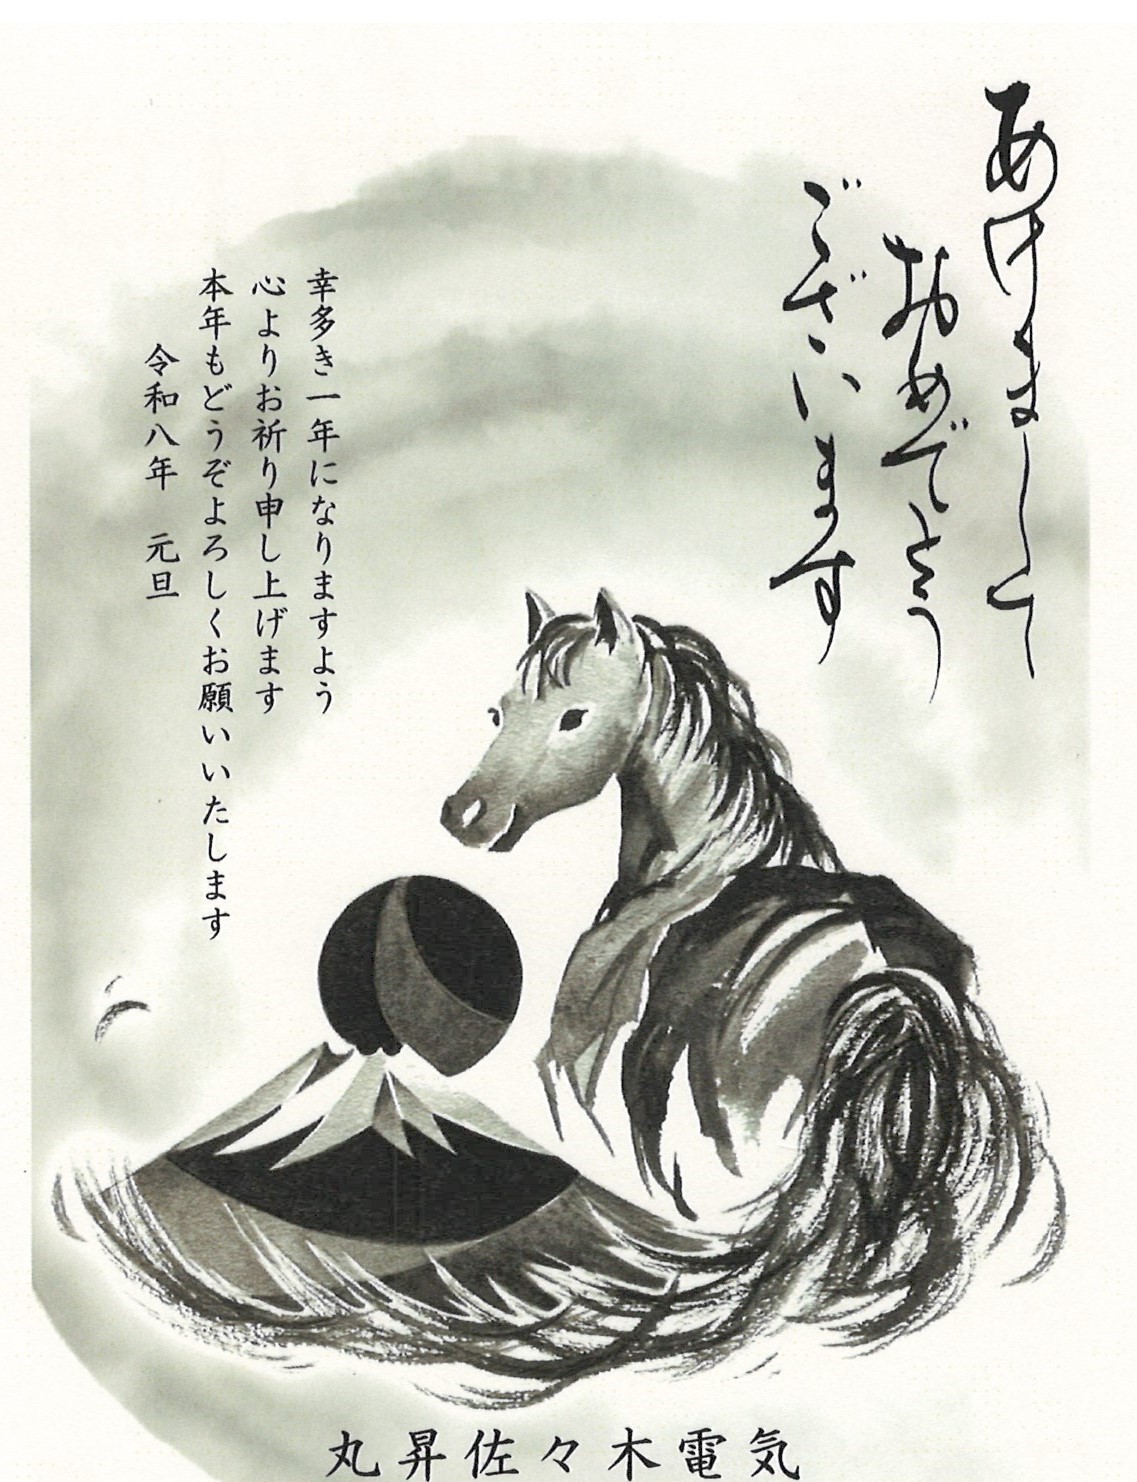 あけまして
おめでとう
ございます
幸多き一年になりますよう
心よりお祈り申し上げます
本年もどうぞよろしくお願いいたします
令和八年　元旦
丸昇佐々木電気